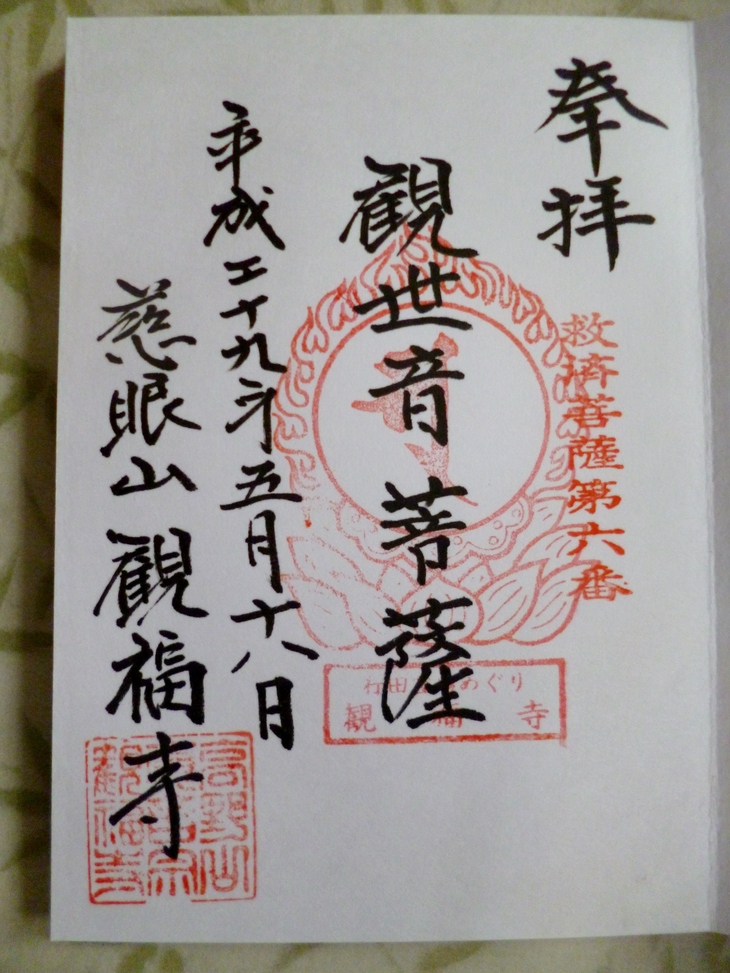 奉拝
救済菩薩第六番
観世音菩薩
行田 めぐり
観福寺
平成二十九年五月十八日
慈眼山観福寺
高野山
宗
観福寺